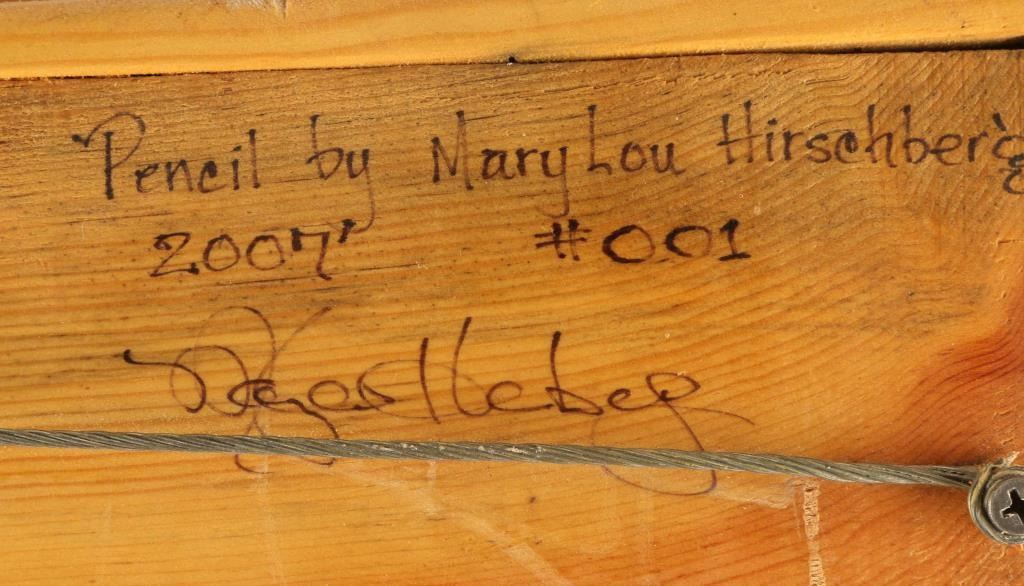 Pencil by Mary Lou Hirschberg
2007 #001